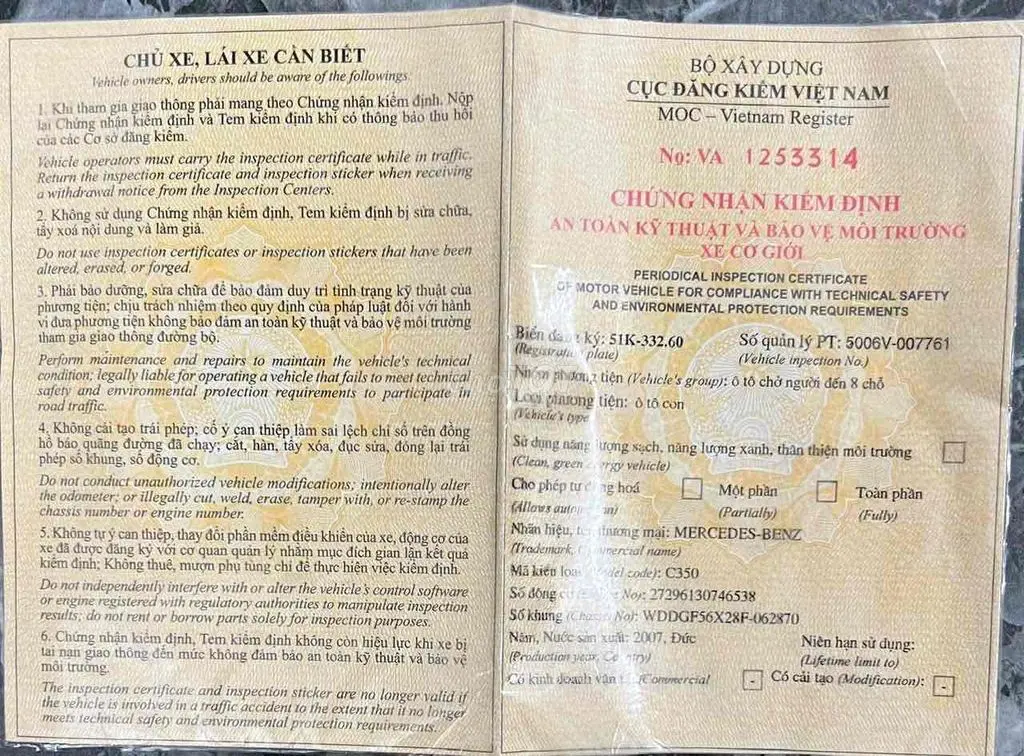 CHỦ XE, LÁI XE CẦN BIẾT
Vehicle owners, drivers should be aware of the followings
1. Khi tham gia giao thông phải mang theo Chứng nhận kiểm định. Nộp
lại Chứng nhận kiểm định và Tem kiểm định khi có thông báo thu hồi
của các Cơ sở đăng kiểm.
Vehicle operators must carry the inspection certificate while in traffic.
Return the inspection certificate and inspection sticker when receiving
a withdrawal notice from the Inspection Centers.
2. Không sử dụng Chứng nhận kiểm định, Tem kiểm định bị sửa chữa,
tẩy xoá nội dung và làm giả.
Do not use inspection certificates or inspection stickers that have been
altered, erased, or forged.
3. Phải bảo dưỡng, sửa chữa để bảo đảm duy trì tình trạng kỹ thuật của
phương tiện; chịu trách nhiệm theo quy định của pháp luật đối với hành
vi đưa phương tiện không bảo đảm an toàn kỹ thuật và bảo vệ môi trường
tham gia giao thông đường bộ.
Perform maintenance and repairs to maintain the vehicle's technical
condition; legally liable for operating a vehicle that fails to meet technical
safety and environmental protection requirements to participate in
road traffic.
4. Không cải tạo trái phép; cố ý can thiệp làm sai lệch chỉ số trên đồng
hồ báo quãng đường đã chạy; cắt, hàn, tẩy xóa, đục sửa, đóng lại trái
phép số khung, số động cơ.
Do not conduct unauthorized vehicle modifications; intentionally alter
the odometer; or illegally cut, weld, erase, tamper with, or re-stamp the
chassis number or engine number.
5. Không tự ý can thiệp, thay đổi phần mềm điều khiển của xe, động cơ của
xe đã được đăng ký với cơ quan quản lý nhằm mục đích gian lận kết quả
kiểm định; Không thuê, mượn phụ tùng chỉ để thực hiện việc kiểm định.
Do not independently interfere with or alter the vehicle's control software
or engine registered with regulatory authorities to manipulate inspection
results; do not rent or borrow parts solely for inspection purposes.
6. Chứng nhận kiểm định, Tem kiểm định không còn hiệu lực khi xe bị
tai nạn giao thông đến mức không đảm bảo an toàn kỹ thuật và bảo vệ
môi trường.
The inspection certificate and inspection sticker are no longer valid if
the vehicle is involved in a traffic accident to the extent that it no longer
meets technical safety and environmental protection requirements.
BỘ XÂY DỰNG
CỤC ĐĂNG KIỂM VIỆT NAM
MOC – Vietnam Register
No: VA 1253314
CHỨNG NHẬN KIỂM ĐỊNH
AN TOÀN KỸ THUẬT VÀ BẢO VỆ MÔI TRƯỜNG
XE CƠ GIỚI
PERIODICAL INSPECTION CERTIFICATE
OF MOTOR VEHICLE FOR COMPLIANCE WITH TECHNICAL SAFETY
AND ENVIRONMENTAL PROTECTION REQUIREMENTS
Biển đăng ký: 51K-332.60 Số quản lý PT: 5006V-007761
(Registration plate) (Vehicle inspection No.)
Nhóm phương tiện (Vehicle's group): ô tô chở người đến 8 chỗ
Loại phương tiện: ô tô con
(Vehicle's type
Sử dụng năng lượng sạch, năng lượng xanh, thân thiện môi trường
(Clean, green energy vehicle)
Cho phép tự động hoá Một phần Toàn phần
(Allows (Partially) (Fully)
Nhãn hiệu, tên thương mại: MERCEDES-BENZ
(Trademark, Commercial name)
Mã kiểu loại (Model code): C350
Số động cơ No): 27296130746538
Số khung (Chassis No): WDDGF56X28F-062870
Năm, Nước sản xuất: 2007, Đức Niên hạn sử dụng:
(Production year, Country) (Lifetime limit to)
Có kinh doanh vận tải Commercial - Có cải tạo (Modification): -